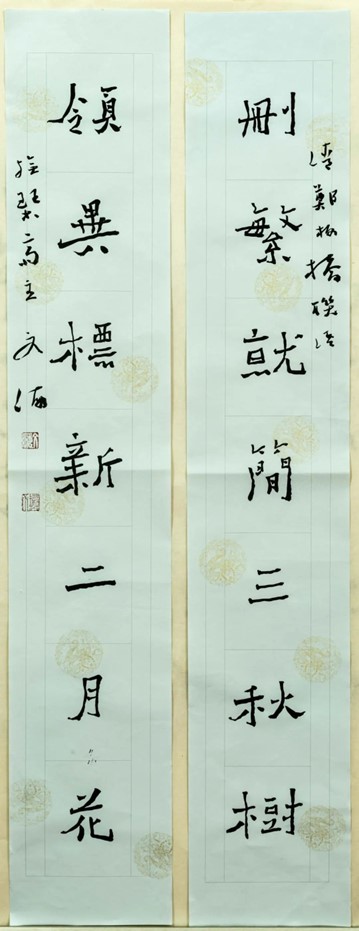 刪繁就簡三秋樹
清鄭板橋聯語
領異標新二月花